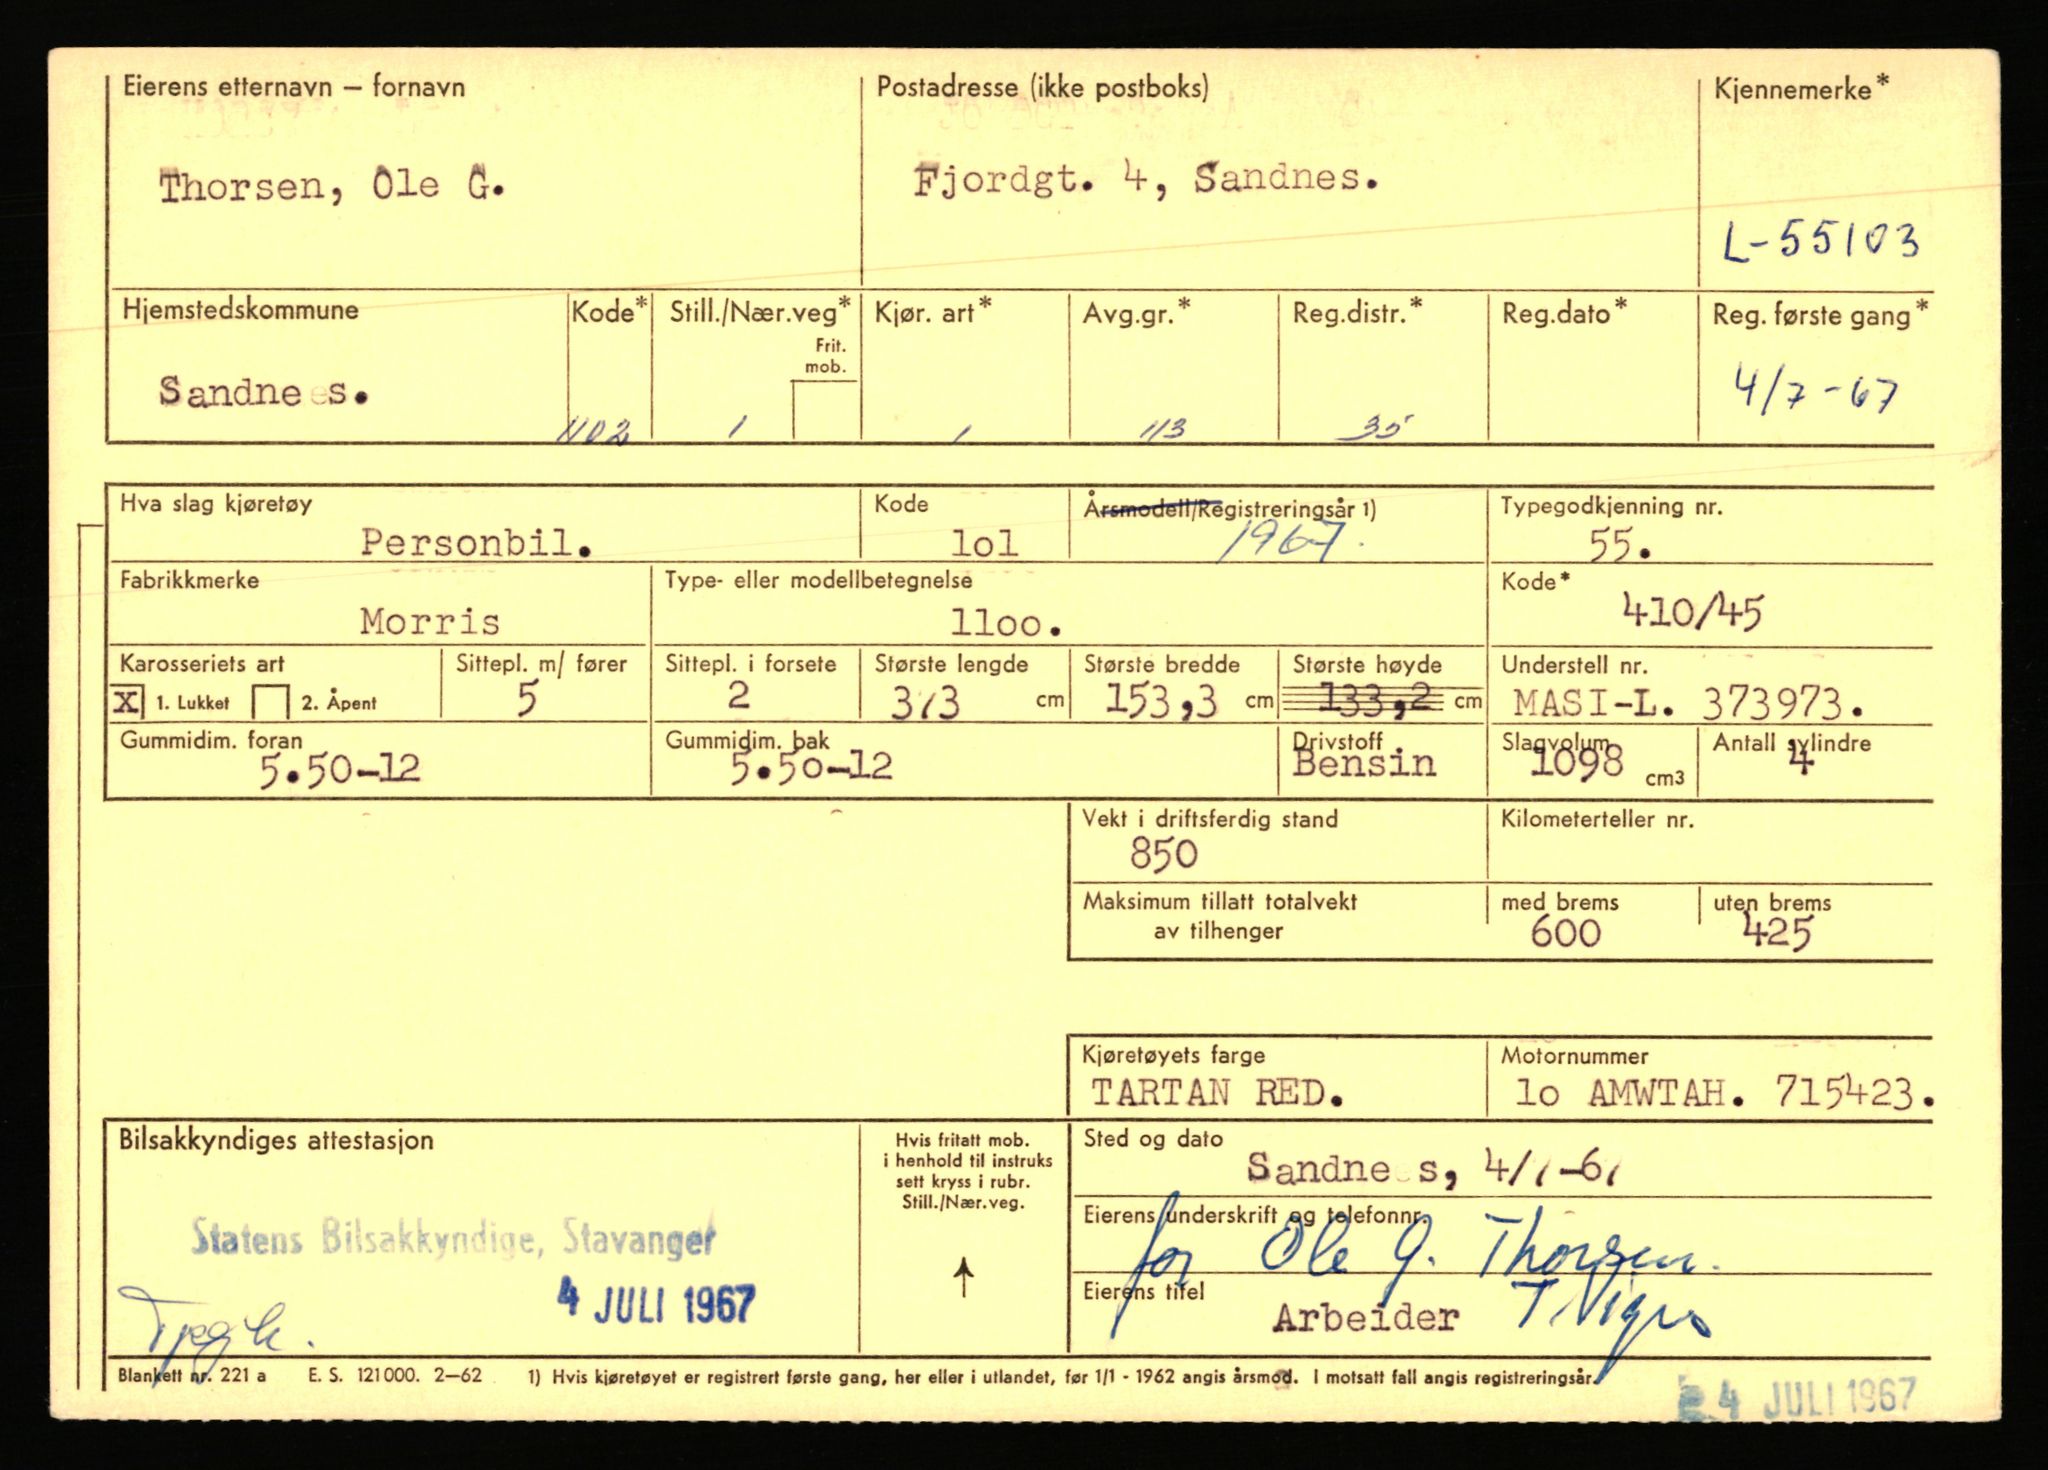 Eierens etternavn – fornavn Postadresse (ikke postboks) Kjennemerke*
Thorsen, Ole G. Fjordgt. 4, Sandnes.
L-55103
Hjemstedskommune Kode* Still./Nær.veg* Kjør. art* Avg.gr.* Reg.distr.* Reg.dato* Reg. første gang*
Frit.
mob.
Sandnes. 4/7-67
1102 1 1 113 35
Hva slag kjøretøy Kode Årsmodell/Registreringsår 1) Typegodkjenning nr.
Personbil. lol 1967. 55.
Fabrikkmerke Type- eller modellbetegnelse Kode*
Morris lloo. 410/45
Karosseriets art Sittepl. m/ fører Sittepl. i forsete Største lengde Største bredde Største høyde Understell nr.
X 1. Lukket 2. Åpent 5 2 373 cm 153,3 cm 133,2 cm MASI-L. 373973.
Gummidim. foran Gummidim. bak Drivstoff Slagvolum Antall sylindre
5.50-12 5.50-12 Bensin 1098 cm3 4
Vekt i driftsferdig stand Kilometerteller nr.
850
Maksimum tillatt totalvekt med brems uten brems
av tilhenger 600 425
Kjøretøyets farge Motornummer
TARTAN RED. lo AMWTAH. 715423.
Bilsakkyndiges attestasjon Hvis fritatt mob. Sted og dato
i henhold til instruks
sett kryss i rubr.
Still./Nær.veg.
Sandnes, 4/7-67
Statens Bilsakkyndige, Stavanger Eierens underskrift og telefonnr.
for Ole G. Thorsen.
4 JULI 1967 Eierens titel
Arbeider
Blankett nr. 221 a E. S. 121000. 2–62 1) Hvis kjøretøyet er registrert første gang, her eller i utlandet, før 1/1 - 1962 angis årsmod. I motsatt fall angis registreringsår.
4 JULI 1967